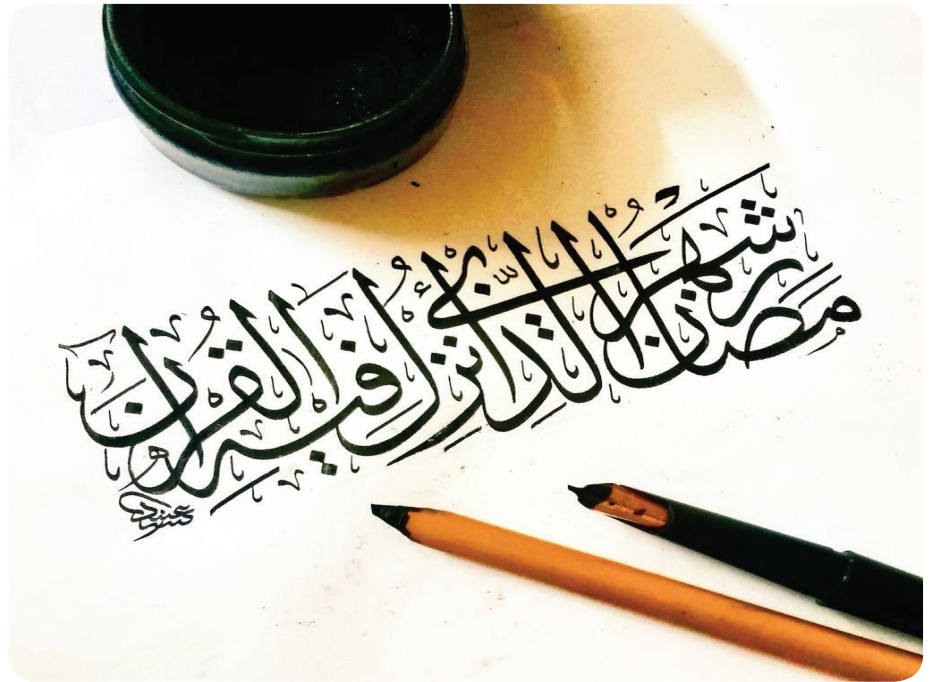 شهر رمضان الذي أنزل فيه القرآن